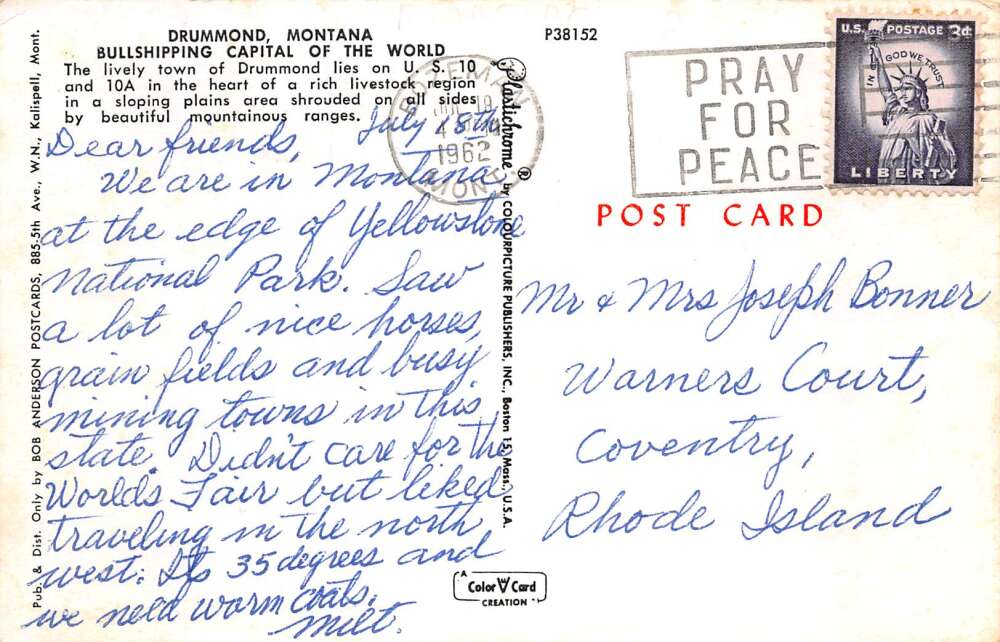 DRUMMOND, MONTANA
BULLSHIPPING CAPITAL OF THE WORLD
The lively town of Drummond lies on U. S. 10
and 10A in the heart of a rich livestock region
in a sloping plains area shrouded on all sides
by beautiful mountainous ranges.
July 18th
Dear friends,
We are in Montana,
at the edge of Yellowstone
National Park. Saw
a lot of nice horses,
grain fields and busy
mining towns in this
state. Didn't care for the
Worlds Fair but liked
traveling in the north
west. Its 35 degrees and
we need warm coats.
Milt.
Pub. & Dist. Only by BOB ANDERSON POSTCARDS, 885-5th Ave., W.N., Kalispell, Mont.
Plastichrome® by COLOURPICTURE PUBLISHERS, INC., Boston 15, Mass., U.S.A.
P38152
BOZEMAN
1962
MONT.
PRAY
FOR
PEACE
U.S. POSTAGE 3¢
IN GOD WE TRUST
LIBERTY
POST CARD
Mr & Mrs Joseph Bonner
Warners Court,
Coventry,
Rhode Island
A
Color W Card
CREATION